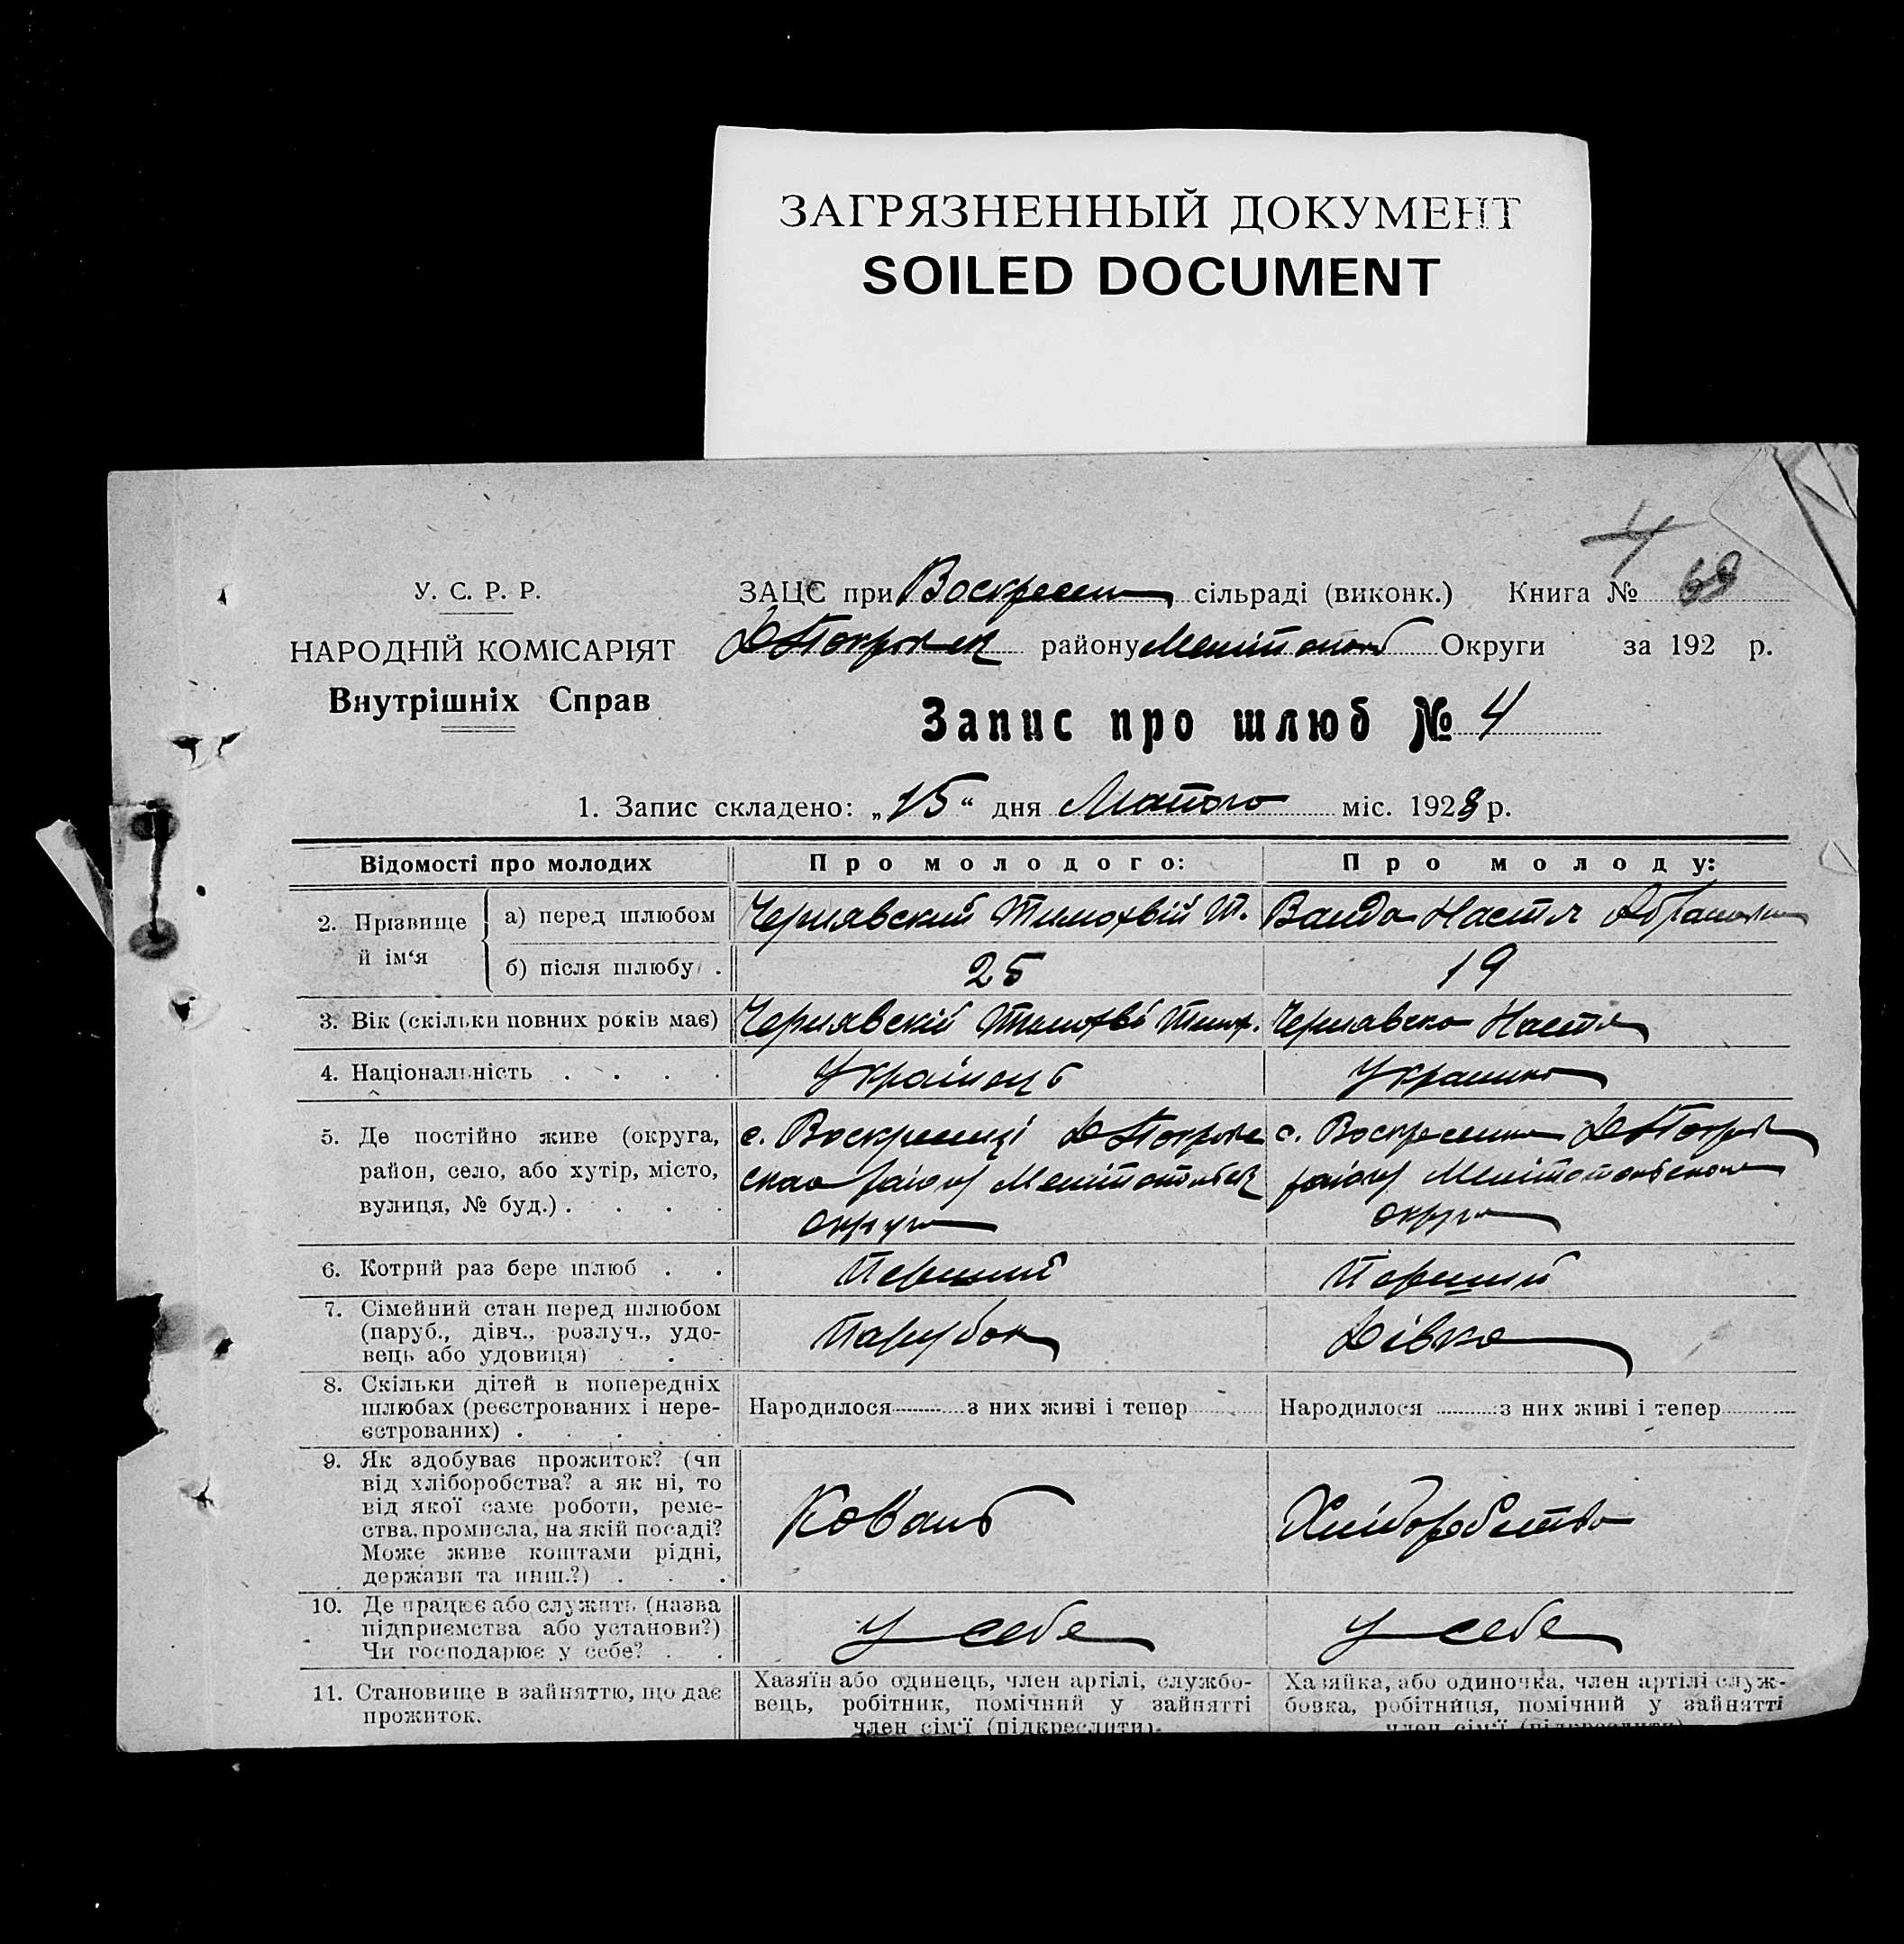 ЗАГРЯЗНЕННЫЙ ДОКУМЕНТ
SOILED DOCUMENT
4
У. С. Р. Р.
ЗАЦС при Воскресен сільраді (виконк.) Книга № 69
НАРОДНІЙ КОМІСАРІЯТ
району Меліт Округи за 192 р.
Внутрішніх Справ
Запис про шлюб № 4
1. Запис складено: „15“ дня Лютого міс. 1928 р.
Відомості про молодих
Про молодого:
Про молоду:
2. Прізвище й ім‘я
а) перед шлюбом
Чернявский Тимофвій Т.
Ванда Настя
б) після шлюбу .
25
19
3. Вік (скільки повних років має)
Чернявскій Тимофві Тимоф.
Чернявска Настя
4. Національність . . . .
Українец
Украинка
5. Де постійно живе (округа,
район, село, або хутір, місто,
вулиця, № буд.) . . . .
с. Воскресенці
району
округи
с. Воскресенка
району
округи
6. Котрий раз бере шлюб . .
Перший
Перший
7. Сімейний стан перед шлюбом
(паруб., дівч., розлуч., удо-
вець або удовиця) . . .
Парубок
Дівка
8. Скільки дітей в попередніх
шлюбах (реєстрованих і нере-
єстрованих) . . . . .
Народилося з них живі і тепер
Народилося з них живі і тепер
9. Як здобуває прожиток? (чи
від хліборобства? а як ні, то
від якої саме роботи, реме-
ства, промисла, на якій посаді?
Може живе коштами рідні,
держави та инш.?) . . .
Коваль
Хліборобство
10. Де працює або служить (назва
підприємства або установи?)
Чи господарює у себе? . .
У себе
У себе
11. Становище в зайняттю, що дає
прожиток.
Хазяїн або одинець, член артілі, службо-
вець, робітник, помічний у зайнятті
член сім‘ї (підкреслити).
Хазяйка, або одиночка, член артілі служ-
бовка, робітниця, помічний у зайнятті
член сім‘ї (підкреслити)